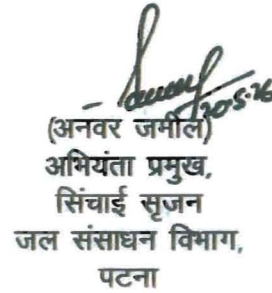 20.5.26
(अनवर जमील)
अभियंता प्रमुख,
सिंचाई सृजन
जल संसाधन विभाग,
पटना